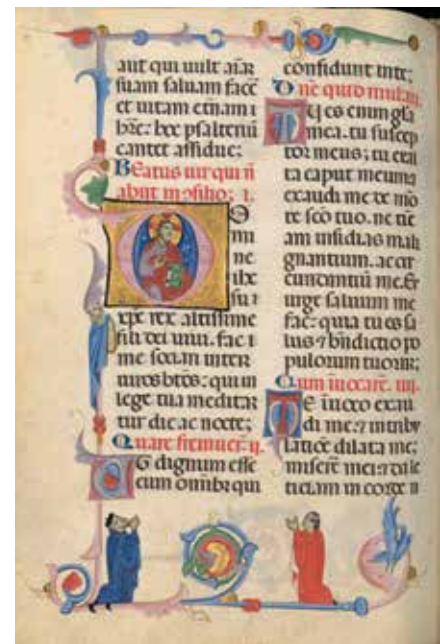 aut qui uult aĩaʒ
suam saluam facẽ
et uitam etñam i
hẽre: hoc psalteriũ
cantet assidue:
BEatus uir qui ñ
abiit in ɔsilio; i.
O
mi
ne
ihx
su
xpe rex altissime
fili dei uiui. fac i
me sociari inter
uiros btõs: qui in
lege tua meditan
tur die ac nocte;
Quare fremuer̃t. ij.
dignum esse
cum omĩbꝫ qui
confidunt in te;
ñe quid multi.
Tu es enim gl̃a
mea. tu suscep
tor meus; tu exal
ta caput meum ⁊
exaudi me de mõ
te sc̃o tuo. ne tĩe
am insidias mali
gnantium. ac cir
cundantiũ me. Ex
urge saluum me
fac: quia tu es sa
lus ⁊ bñdictio po
pulorum tuorũ;
Cum iuocarẽ. iiij.
TE iuoco exau
di me: ⁊ in tribu
latiõe dilata me;
miserẽ mei: ⁊ da le
ticiam in corde m